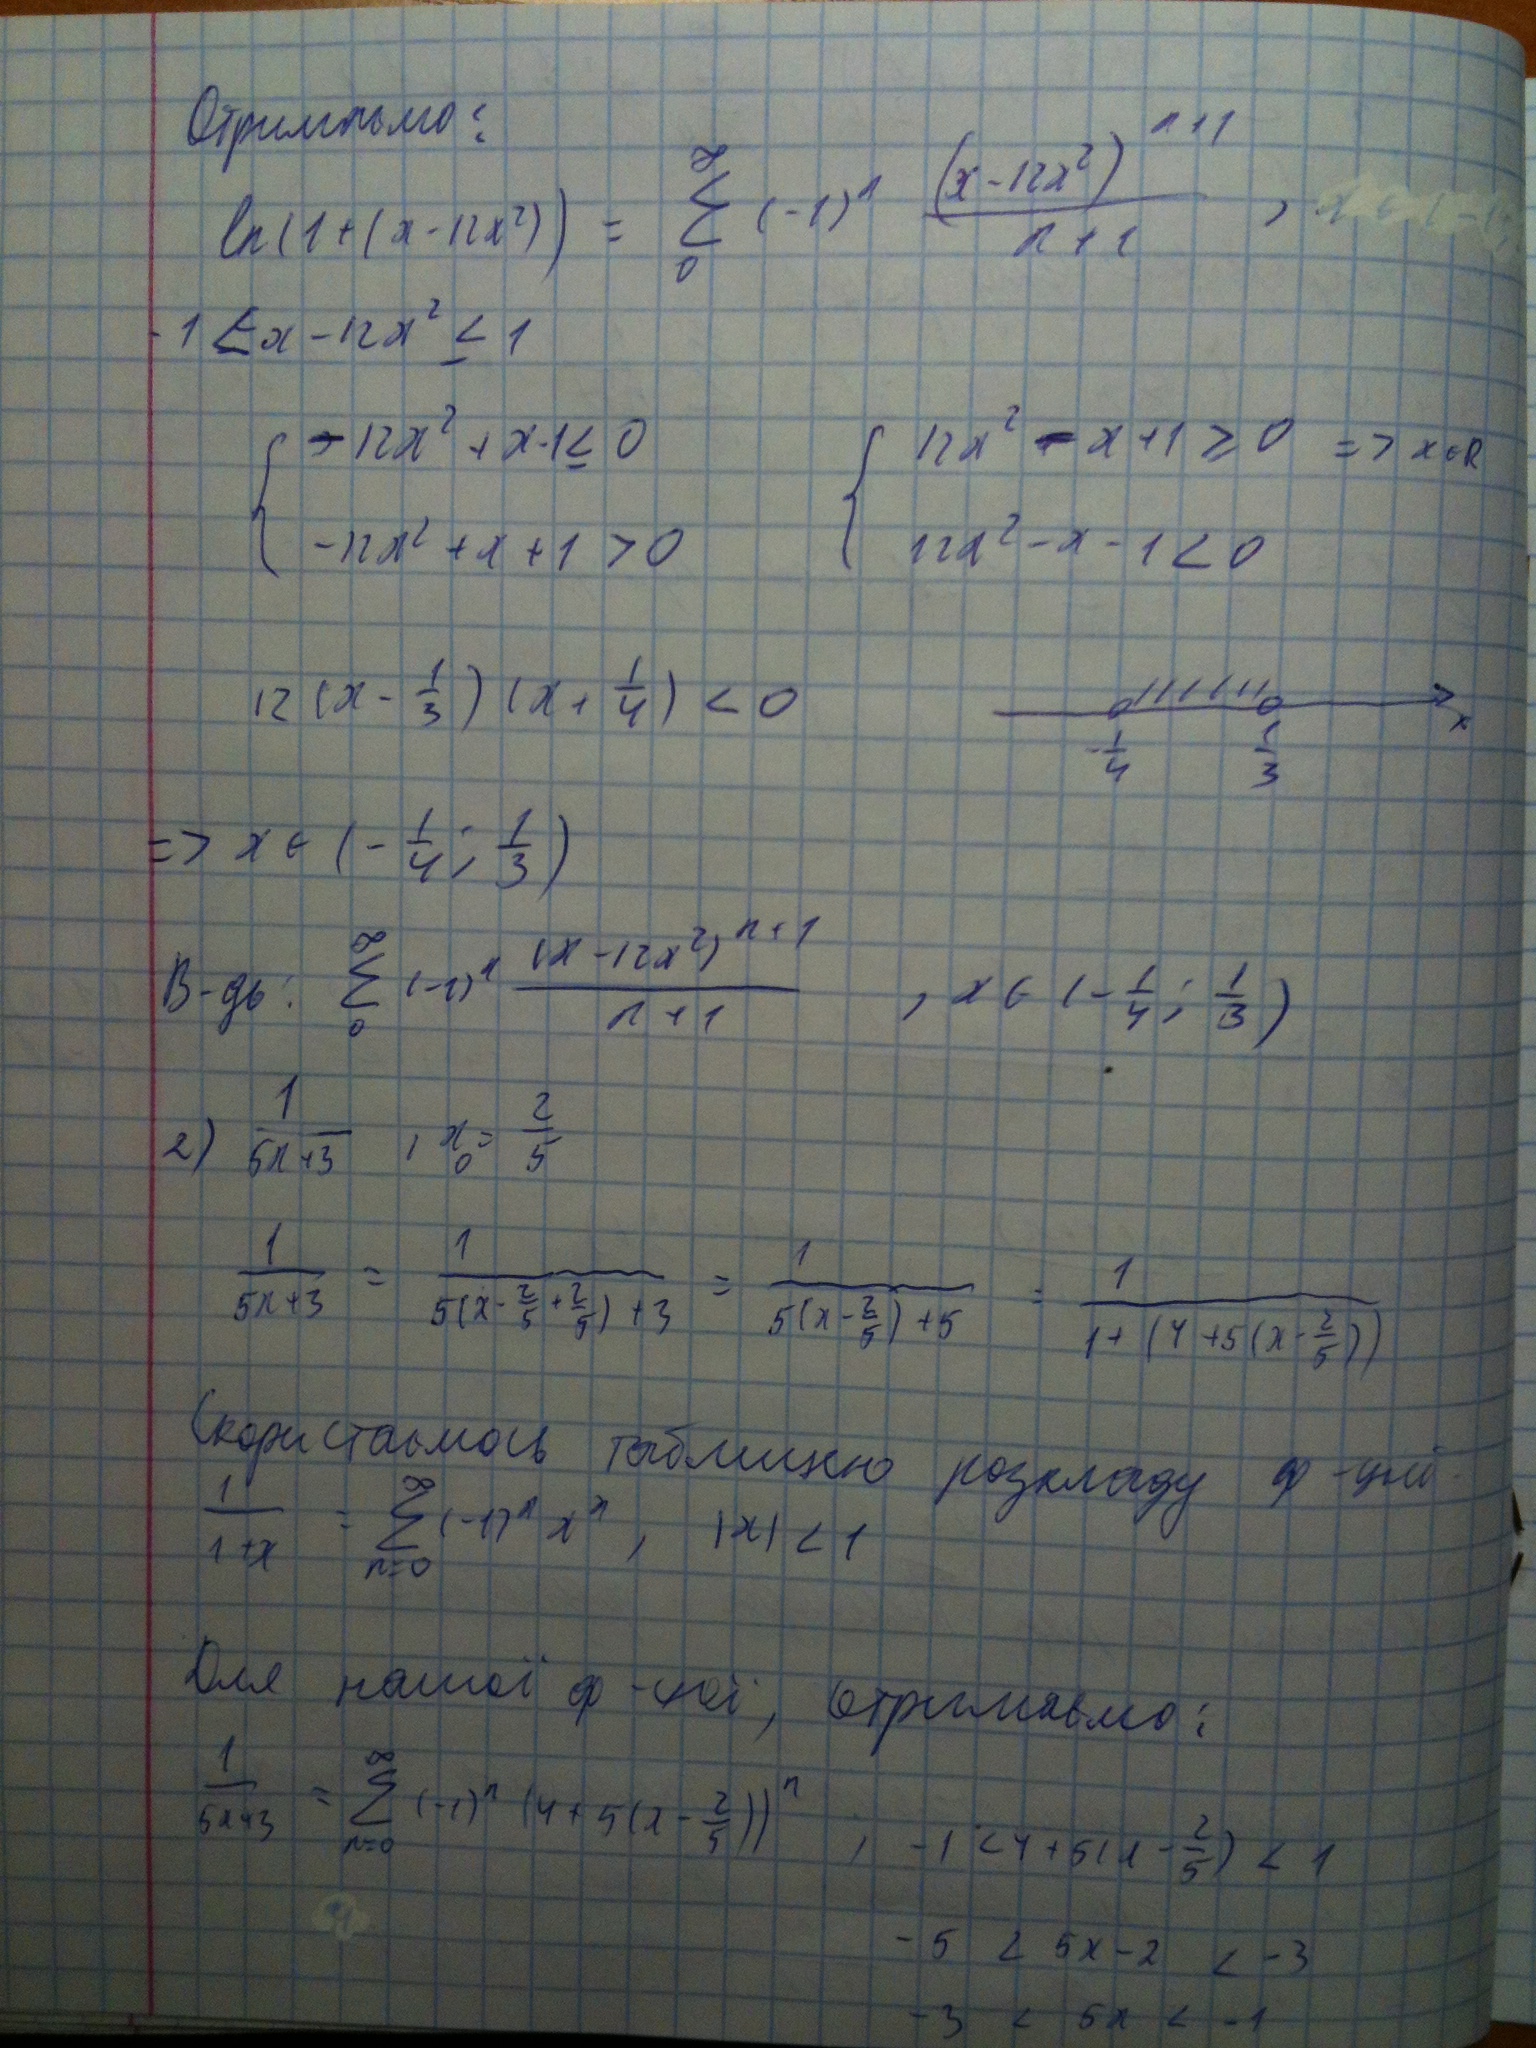 Отримаємо:
ln(1+(x-12x²)) = ∑₀^∞ (-1)ⁿ (x-12x²)ⁿ⁺¹/(n+1) ,
-1 ≤ x-12x² ≤ 1
{ -12x² + x-1 ≤ 0 { 12x² - x+1 ≥ 0 => x∈R
-12x² + x + 1 > 0 12x² - x - 1 < 0
12 (x - 1/3) (x + 1/4) < 0 -1/4 1/3 x
=> x ∈ (-1/4; 1/3)
В-дь: ∑₀^∞ (-1)ⁿ (x-12x²)ⁿ⁺¹/(n+1) , x ∈ (-1/4; 1/3)
2) 1/(5x+3) , x₀ = 2/5
1/(5x+3) = 1/(5(x-2/5+2/5)+3) = 1/(5(x-2/5)+5) = 1/(1+(4+5(x-2/5)))
Скористаємось таблицею розкладу ф-цій
1/(1+x) = ∑ₙ₌₀^∞ (-1)ⁿ xⁿ , |x| < 1
Для нашої ф-ції, отримаємо:
1/(5x+3) = ∑ₙ₌₀^∞ (-1)ⁿ (4+5(x-2/5))ⁿ , -1 < 4+5(x-2/5) < 1
-5 < 5x-2 < -3
-3 < 5x < -1